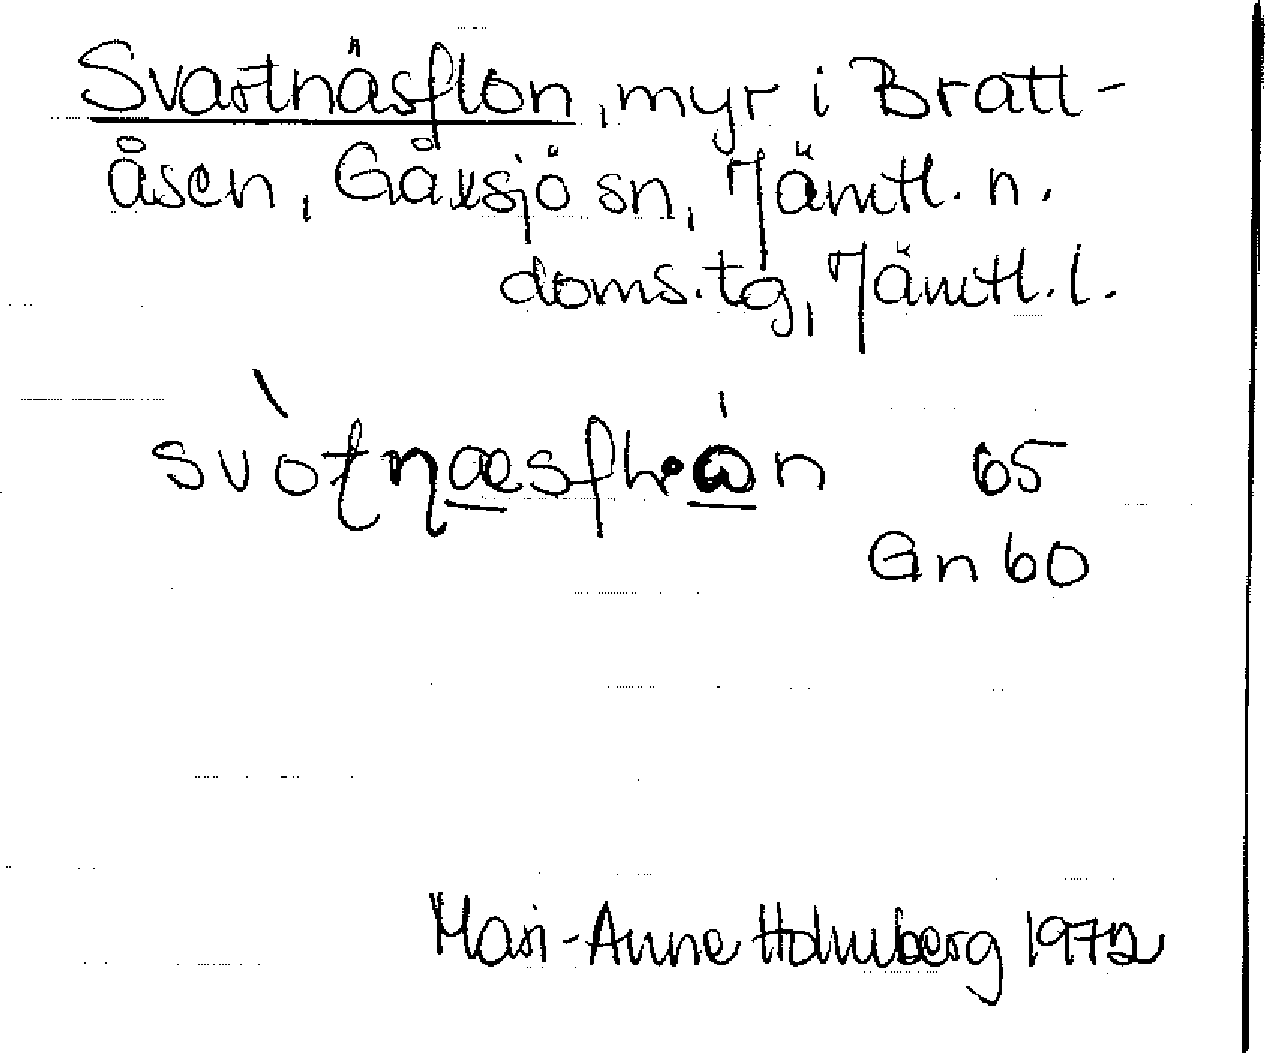 Svartnäsflon, myr i Bratt-
åsen, Gåxsjö sn, Jämtl. n.
doms. tg, Jämtl. l.
65
Gn 60
Mari-Anne Holmberg 1972